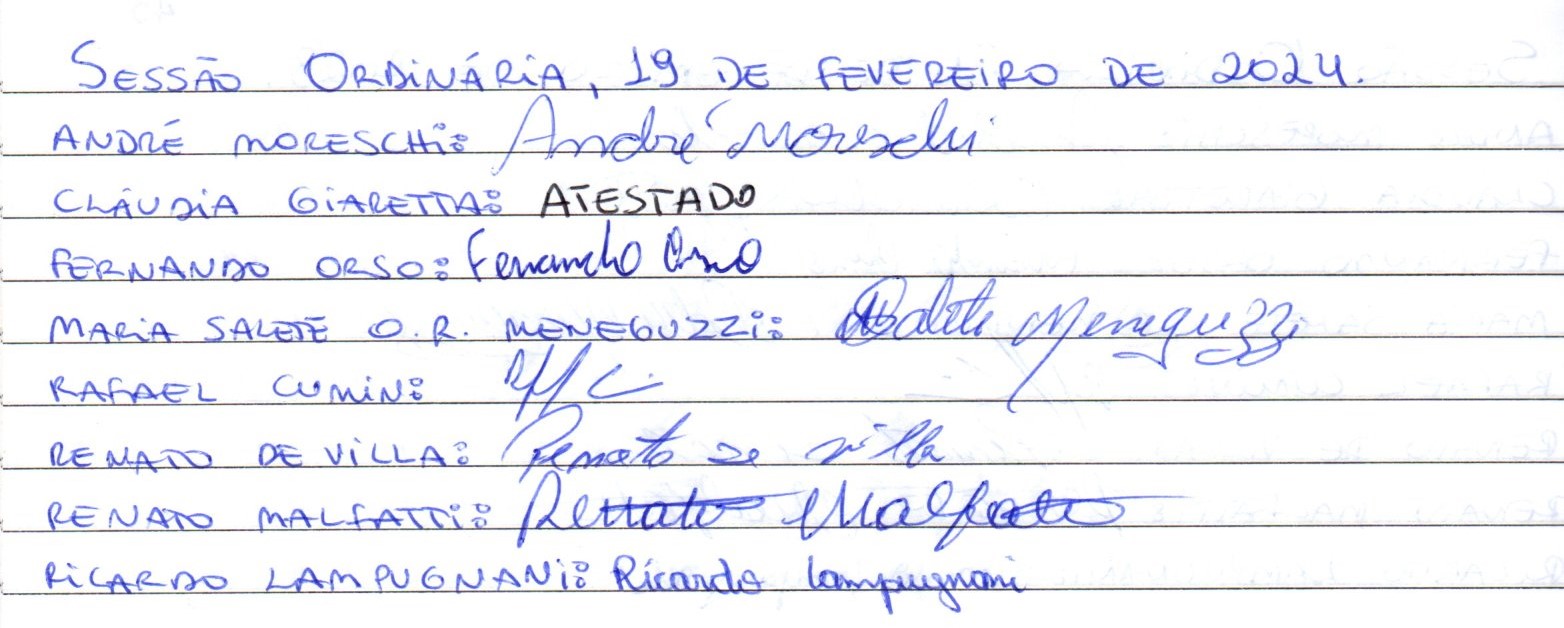 SESSÃO ORDINÁRIA, 19 DE FEVEREIRO DE 2024.
ANDRÉ MORESCHI: André Moreschi
CLÁUDIA GIARETTA: ATESTADO
FERNANDO ORSO: Fernando Orso
MARIA SALETE O. R. MENEGUZZI: Salete Meneguzzi
RAFAEL CUMIN:
RENATO DE VILLA: Renato De Villa
RENATO MALFATTI: Renato Malfatti
RICARDO LAMPUGNANI: Ricardo Lampugnani